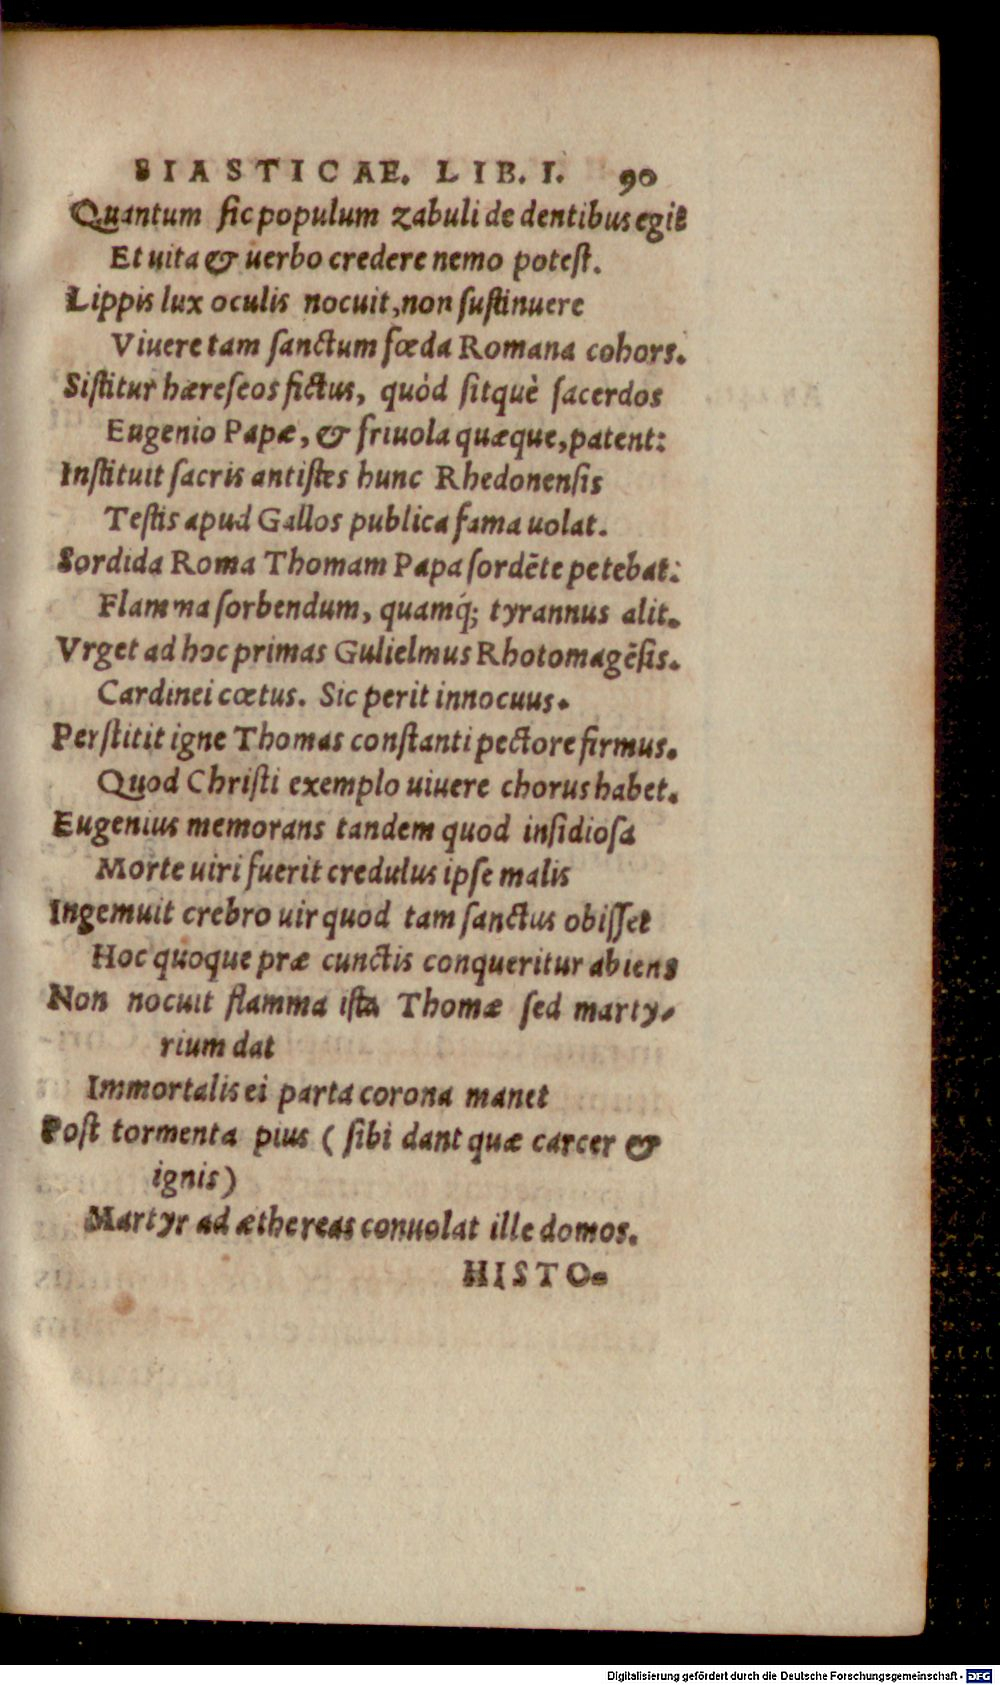 SIASTICAE. LIB. I. 90
Quantum sic populum zabuli de dentibus egit
Et uita & uerbo credere nemo potest.
Lippis lux oculis nocuit, non sustinuere
Viuere tam sanctum fœda Romana cohors.
Sistitur hæreseos fictus, quòd sitquè sacerdos
Eugenio Papæ, & friuola quæque, patent:
Instituit sacris antistes hunc Rhedonensis
Testis apud Gallos publica fama uolat.
Sordida Roma Thomam Papa sordēte petebat:
Flamma sorbendum, quamq́; tyrannus alit.
Vrget ad hoc primas Gulielmus Rhotomagēsis.
Cardinei cœtus. Sic perit innocuus.
Perstitit igne Thomas constanti pectore firmus.
Quod Christi exemplo uiuere chorus habet.
Eugenius memorans tandem quod insidiosa
Morte uiri fuerit credulus ipse malis
Ingemuit crebro uir quod tam sanctus obisset
Hoc quoque præ cunctis conqueritur abiens
Non nocuit flamma ista Thomæ sed marty-
rium dat
Immortalis ei parta corona manet
Post tormenta pius ( sibi dant quæ carcer &
ignis)
Martyr ad æthereas conuolat ille domos.
HISTO-
Digitalisierung gefördert durch die Deutsche Forschungsgemeinschaft - DFG